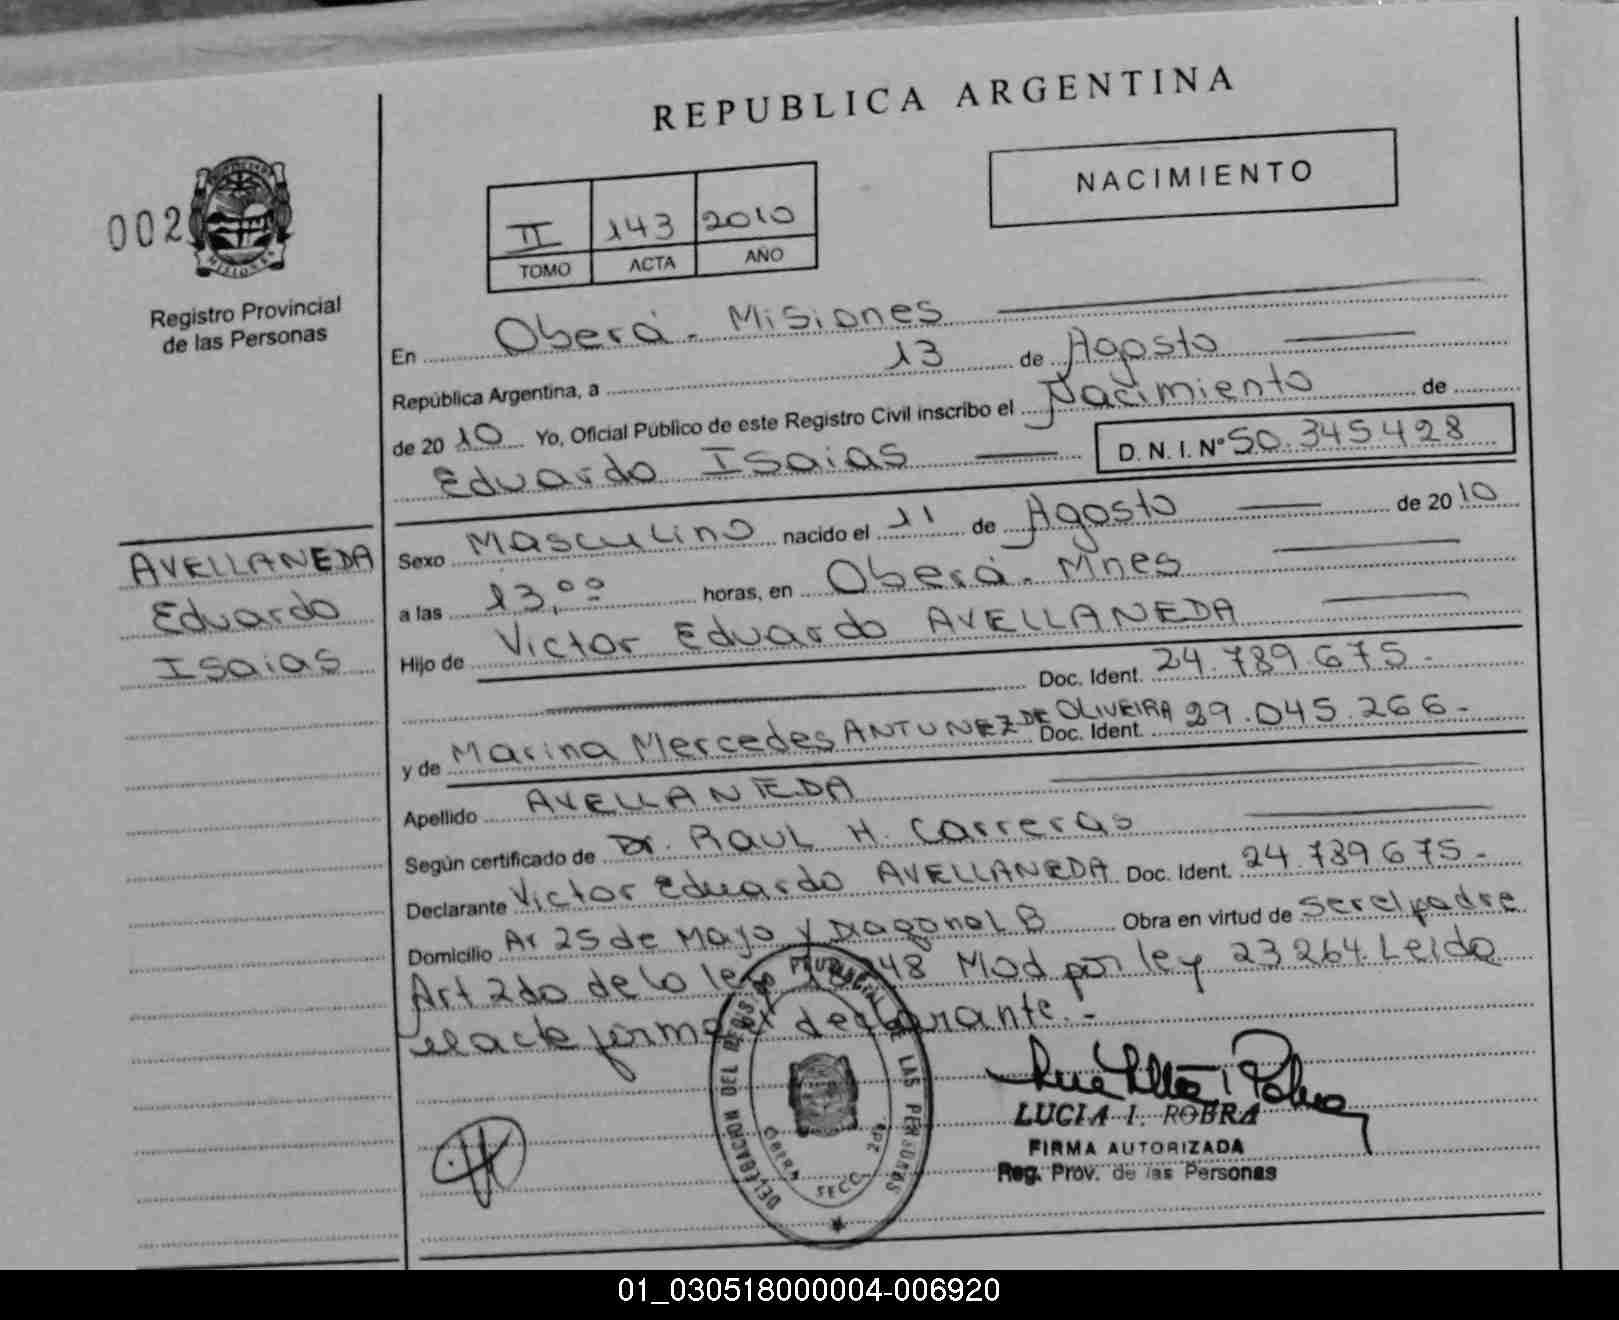 REPUBLICA ARGENTINA
NACIMIENTO
002
MISIONES
Registro Provincial
de las Personas
II 143 2010
TOMO ACTA AÑO
En Oberá - Misiones
República Argentina, a 13 de Agosto
de 2010 Yo, Oficial Público de este Registro Civil inscribo el Nacimiento de
Eduardo Isaias D. N. I. Nº 50.345428
AVELLANEDA
Eduardo
Isaias
Sexo Masculino nacido el 11 de Agosto de 2010
a las 13,00 horas, en Oberá - Mnes
Hijo de Victor Eduardo AVELLANEDA
Doc. Ident. 24.789.675.-
y de Marina Mercedes ANTUNEZ DE OLIVEIRA Doc. Ident. 29.045.266-
Apellido AVELLANEDA
Según certificado de Dr. RAUL H. Carreras
Declarante Victor Eduardo AVELLANEDA Doc. Ident. 24.789675-
Domicilio Av 25 de Mayo y Diagonal B Obra en virtud de ser el padre
Art 2do de la ley 18248 Mod por ley 23264. Leida
el acta firma el declarante.-
DELEGACION DEL REGISTRO PROVINCIAL DE LAS PERSONAS
OBERA SECC. 2da.
LUCIA I. ROBRA
FIRMA AUTORIZADA
Reg. Prov. de las Personas
01_030518000004-006920